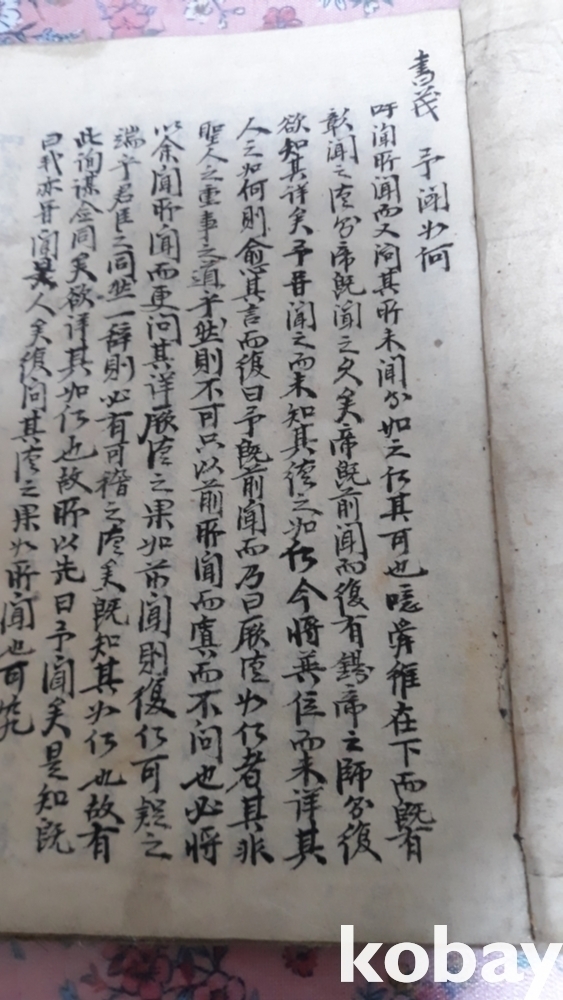 書茂 予聞如何
吁聞所聞而又問其所未聞如之何其可也噫舜雖在下而既有
彰聞之德帝既聞之久矣帝既前聞而復有錫帝之師復
欲知其詳矣予昔聞之而未知其德之如何今將巽位而未詳其
人之如何則兪其言而復曰予既前聞而乃曰厥德如何者其非
聖人之重事之道乎然則不可只以前所聞而實而不問也必將
以余聞所聞而更問其詳厥德之果如前聞則復何可疑之
端乎君臣之同然一辞則必有可稽之德矣既知其如何也故有
此詢謀仝同矣欲詳其如何也故所以先曰予聞矣是知既
曰我亦昔聞其人矣復問其德之果如所聞也可
kobay